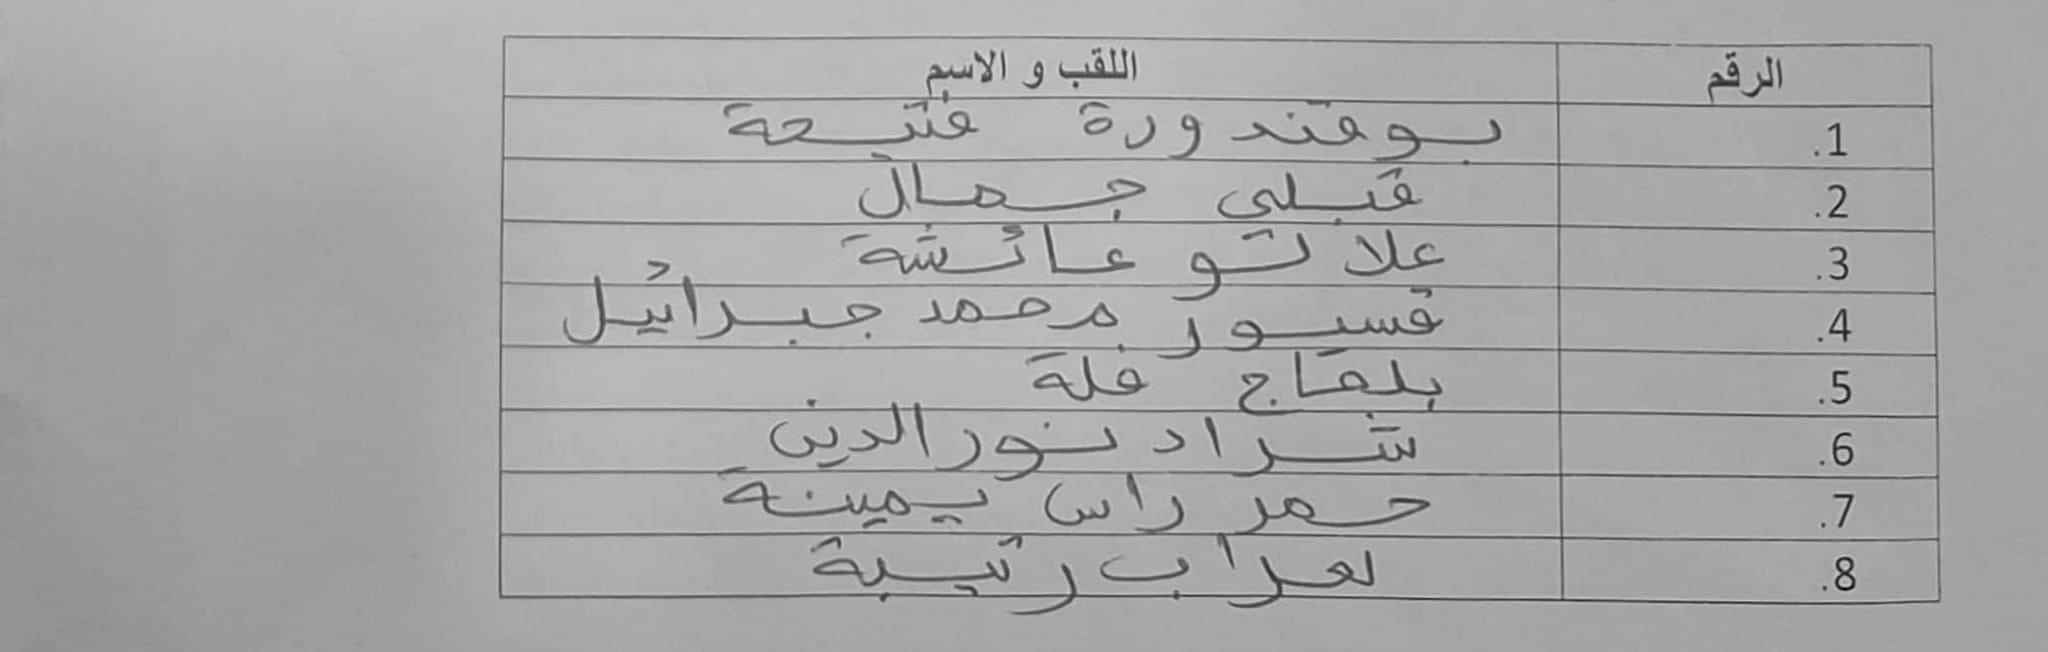 الرقم اللقب و الاسم
1. بوقندورة فتيحة
2. قبلي جمال
3. علاتو عائشة
4. قسيور محمد جبرائيل
5. بلقاج فلة
6. شراد نور الدين
7. حمر راس يمينة
8. لعراب رتيبة